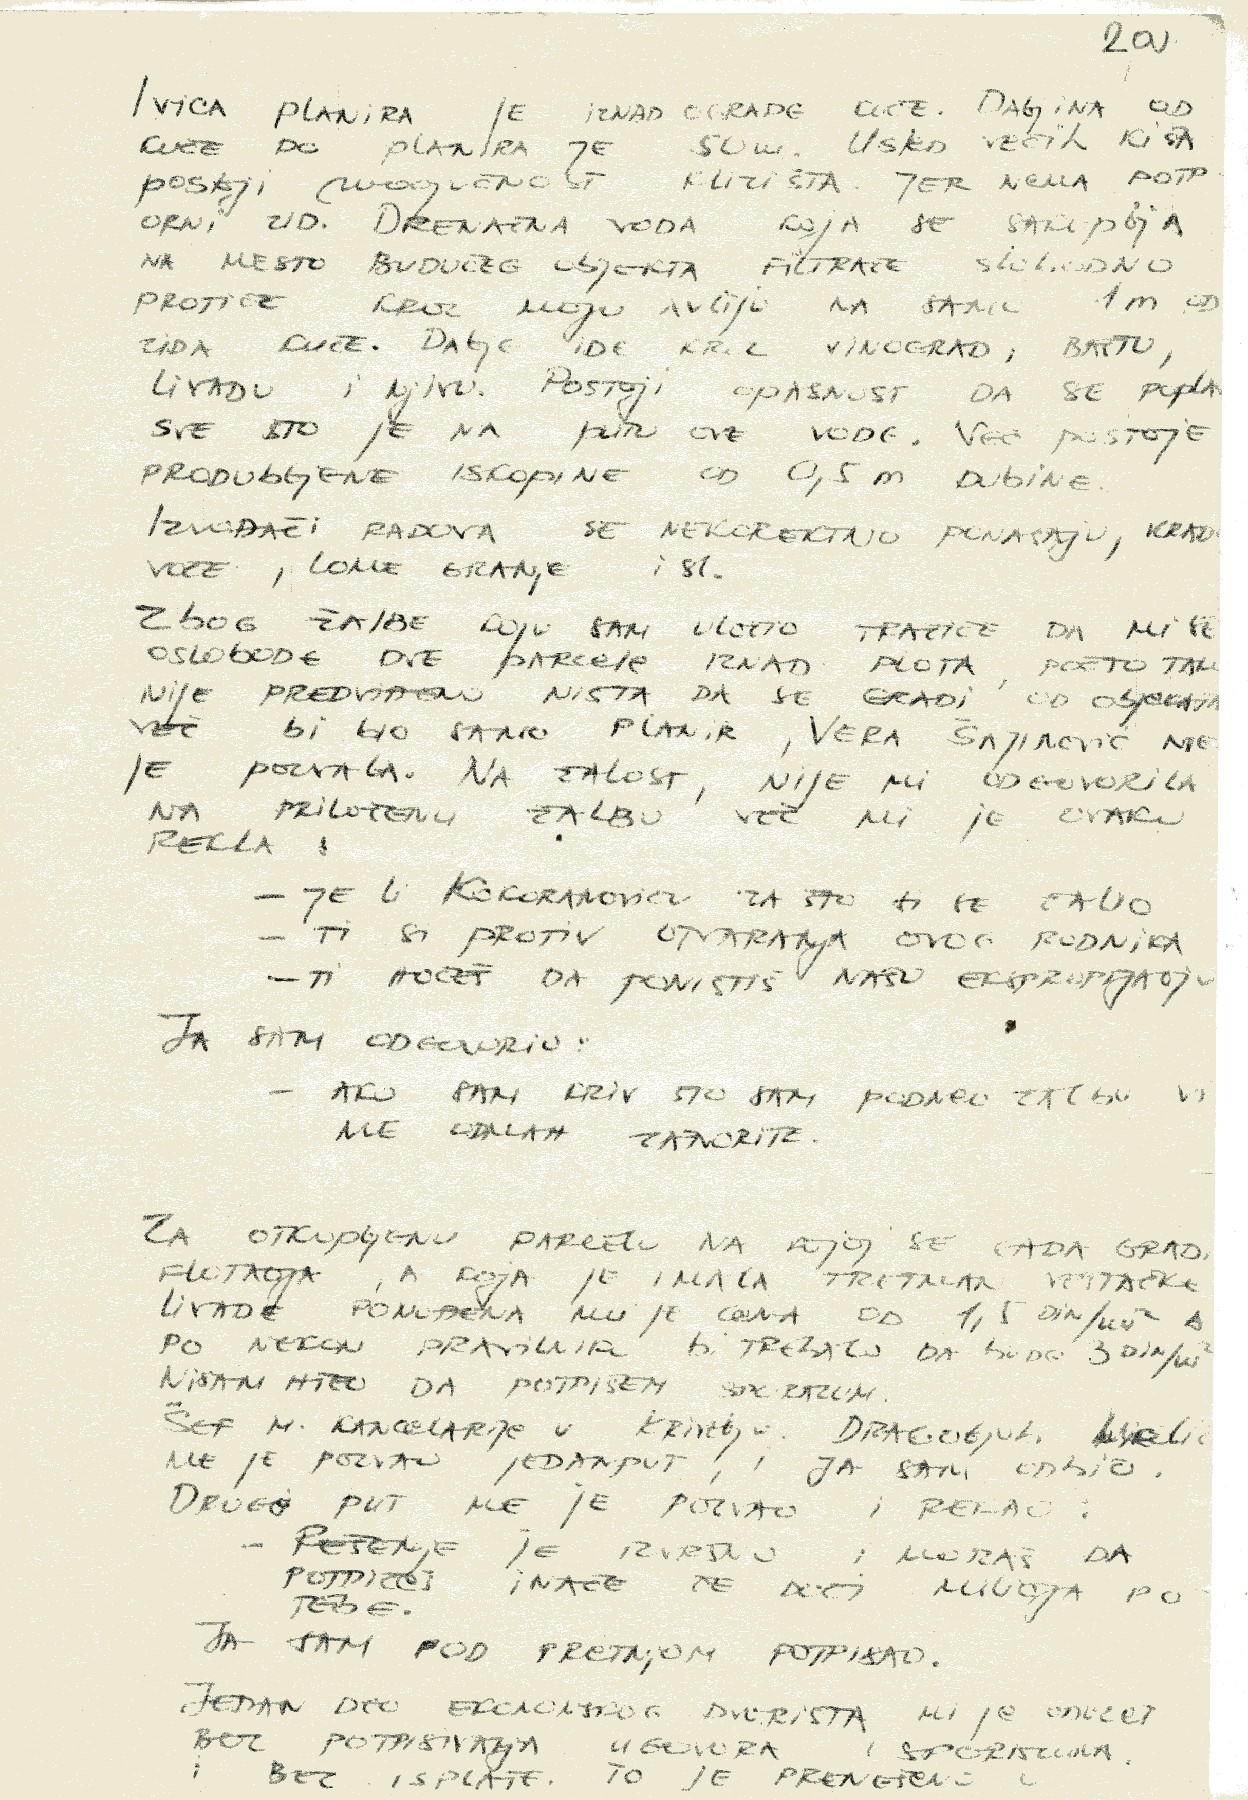 20
IVICA PLANIRA JE IZNAD OGRADE KUĆE. DALJINA OD
KUĆE DO PLANIRA JE 50m. USLED VEĆIH KIŠA
POSTOJI MOGUĆNOST KLIZIŠTA. JER NEMA POTP
ORNI ZID. DRENAŽNA VODA KOJA SE SAKUPLJA
NA MESTO BUDUĆEG OBJEKTA FILTRAŽE SLOBODNO
PROTIČE KROZ MOJU AVLIJU NA SAMO 1m OD
ZIDA KUĆE. DALJE IDE KROZ VINOGRAD, BAŠTU,
LIVADU I NJIVU. POSTOJI OPASNOST DA SE POPLA
SVE ŠTO JE NA PUTU OVE VODE. VEĆ POSTOJE
PRODUBLJENE ISKOPINE OD 0,5 m DUBINE.
IZVOĐAČI RADOVA SE NEKOREKTNO PONAŠAJU, KRADU
VOĆE, LOME GRANJE I SL.
ZBOG ŽALBE KOJU SAM ULOŽIO TRAŽEĆI DA MI SE
OSLOBODE DVE PARCELE IZNAD PLOTA, POŠTO TAMO
NIJE PREDVIĐENO NIŠTA DA SE GRADI OD OBJEKATA
VEĆ BI BIO SAMO PLANIR, VERA ŠAJINOVIĆ ME
JE POZVALA. NA ŽALOST, NIJE MI ODGOVORILA
NA PRILOŽENU ŽALBU VEĆ MI JE OVAKO
REKLA :
– JE LI KOKORANOVIĆU ZA ŠTO TI SE ŽALIO
– TI SI PROTIV OTVARANJA OVOG RUDNIKA
– TI HOĆEŠ DA PONIŠTIŠ NAŠU EKSPROPIJACIJU
JA SAM ODGOVORIO :
– AKO SAM KRIV ŠTO SAM PODNEO ŽALBU VI
ME ODMAH ZATVORITE.
ZA OTKUPLJENU PARCELU NA KOJOJ SE SADA GRADI
FLOTACIJA, A KOJA JE IMALA TRETMAN VEŠTAČKE
LIVADE PONUĐENA MI JE CENA OD 1,5 DIN/m² A
PO NEKOM PRAVILNIKU BI TREBALO DA BUDE 3 DIN/m²
NISAM HTEO DA POTPIŠEM SPORAZUM.
ŠEF M. KANCELARIJE U KRIVELJU. DRAGOLJUB
ME JE POZVAO JEDANPUT, I JA SAM ODBIO.
DRUGI PUT ME JE POZVAO I REKAO :
– REŠENJE JE IZVRŠNO I MORAŠ DA
POTPIŠEŠ INAČE ĆE DOĆI MILICIJA PO
TEBE.
JA SAM POD PRETNJOM POTPISAO.
JEDAN DEO EKONOMSKOG DVORIŠTA MI JE ODUZET
BEZ POTPISIVANJA UGOVORA I SPORAZUMA.
I BEZ ISPLATE. TO JE PRENEŠENO U